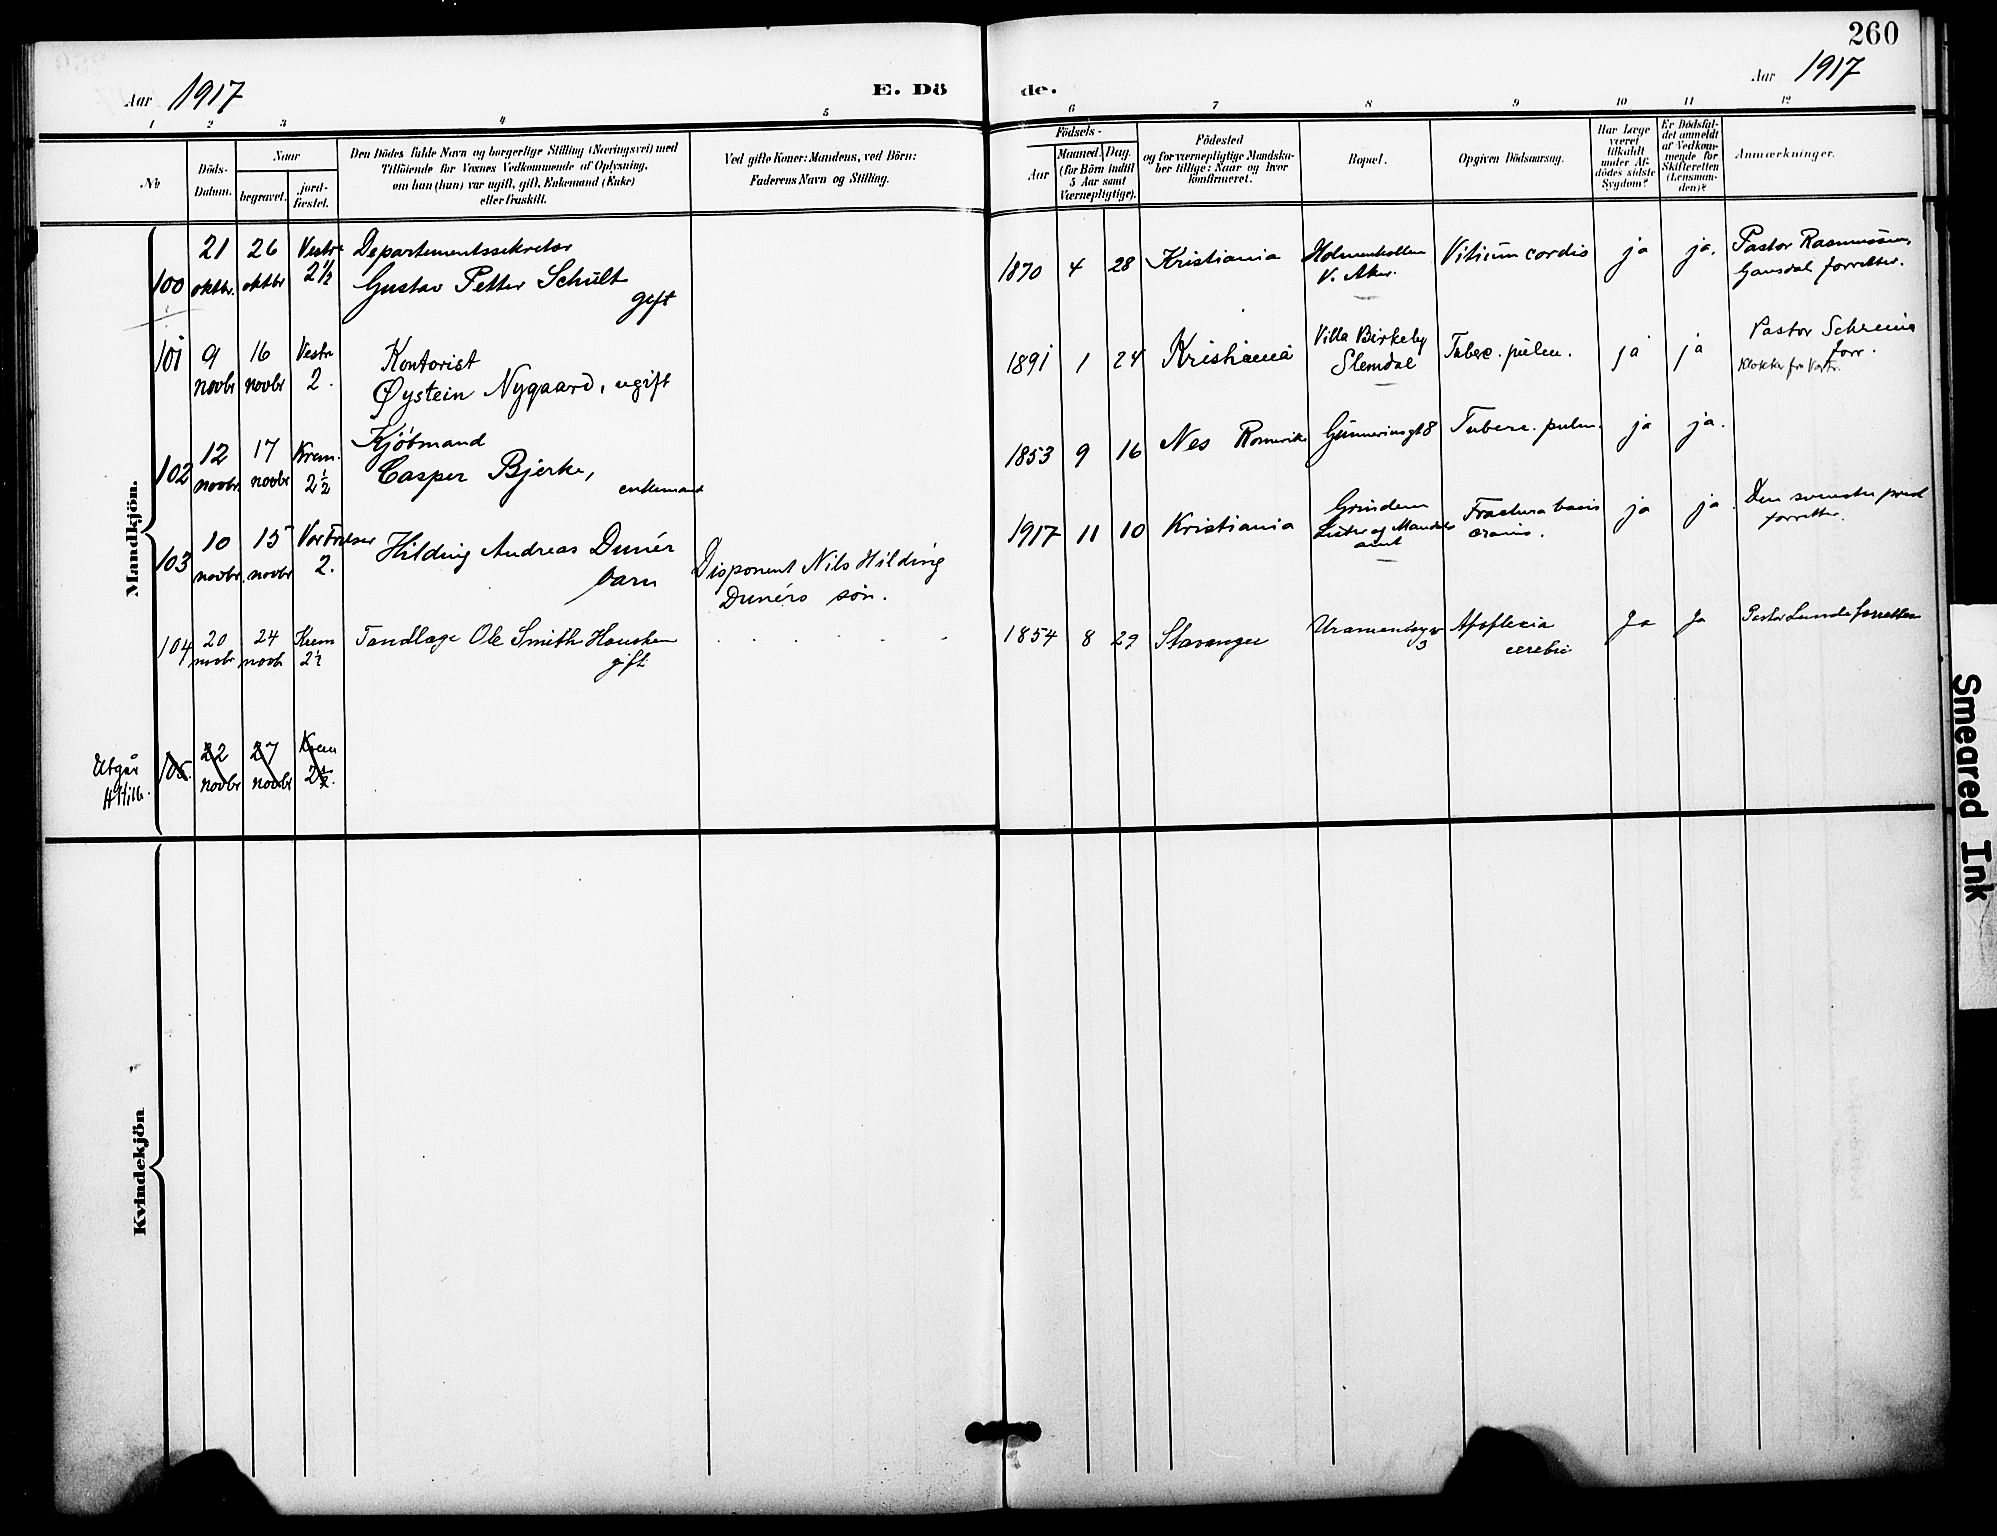 260
Aar 1917
E. Dö
de.
Aar 1917
1 2 3 4 5 6 7 8 9 10 11 12
No
Döds-
Datum.
Naar
begravet.
jord-
fæstet.
Den Dödes fulde Navn og borgerlige Stilling (Næringsvei) med
Tilföiende for Voxnes Vedkommende af Oplysning,
om han (hun) var ugift, gift, Enkemand (Enke)
eller fraskilt.
Ved gifte Koner: Mandens, ved Börn:
Faderens Navn og Stilling.
Födsels-
Aar
Maaned. Dag.
(for Börn indtil
5 Aar samt
Værnepligtige).
Födested
og for værnepligtige Mandska-
ber tillige: Naar og hvor
konfirmeret.
Bopæl.
Opgiven Dödsaarsag.
Har Læge
været
tilkaldt
under Af-
dödes sidste
Sygdom?
Er Dödsfal-
det anmeldt
af Vedkom-
mende for
Skifteretten
(Lensman-
den)?
Anmærkninger.
Mandkjön.
100
21
oktbr.
26
oktbr
Vestre
2 1/2
Departementssekretær
Gustav Petter Schült
gift
1870 4 28 Kristiania
Holmenkollen
V. Aker.
Vitium cordis
ja
ja.
Pastor Rasmussen,
Gausdal forretter.
101
9
novbr
16
novbr
Vestre
2.
Kontorist
Øystein Nygaard, ugift
1891 1 24 Kristiania
Villa Birkeby
Slemdal
Tuberc. pulm.
ja
ja
Pastor Schreiner
forr.
Klokker fra Vestr.
102
12
novbr.
17
novbr
Krem.
2 1/2
Kjøbmand
Casper Bjerke,
enkemand
1853 9 16 Nes Romerike
Gunnerusgt 8
Tuberc. pulm.
ja
ja.
103
10
novbr.
15
novbr
Vor Frelser
2.
Hilding Andreas Dunér
barn
Disponent Nils Hilding
Dunérs søn.
1917 11 10 Kristiania
Lister og Mandals
amt
Fractura basis
cranii.
ja
ja.
Den svenske prest
forretter.
104
20
novbr
24
novbr
Krem
2 1/2
Tandlæge Ole Smith Housken
gift
1854 8 29 Stavanger
Uranienborgv
3
Apoplexia
cerebri
Ja
Ja
Pastor Lunde forretter
Utgår
105.
22
novbr
27
novbr
Krem
2 1/2.
Kvindekjön
Smeared Ink